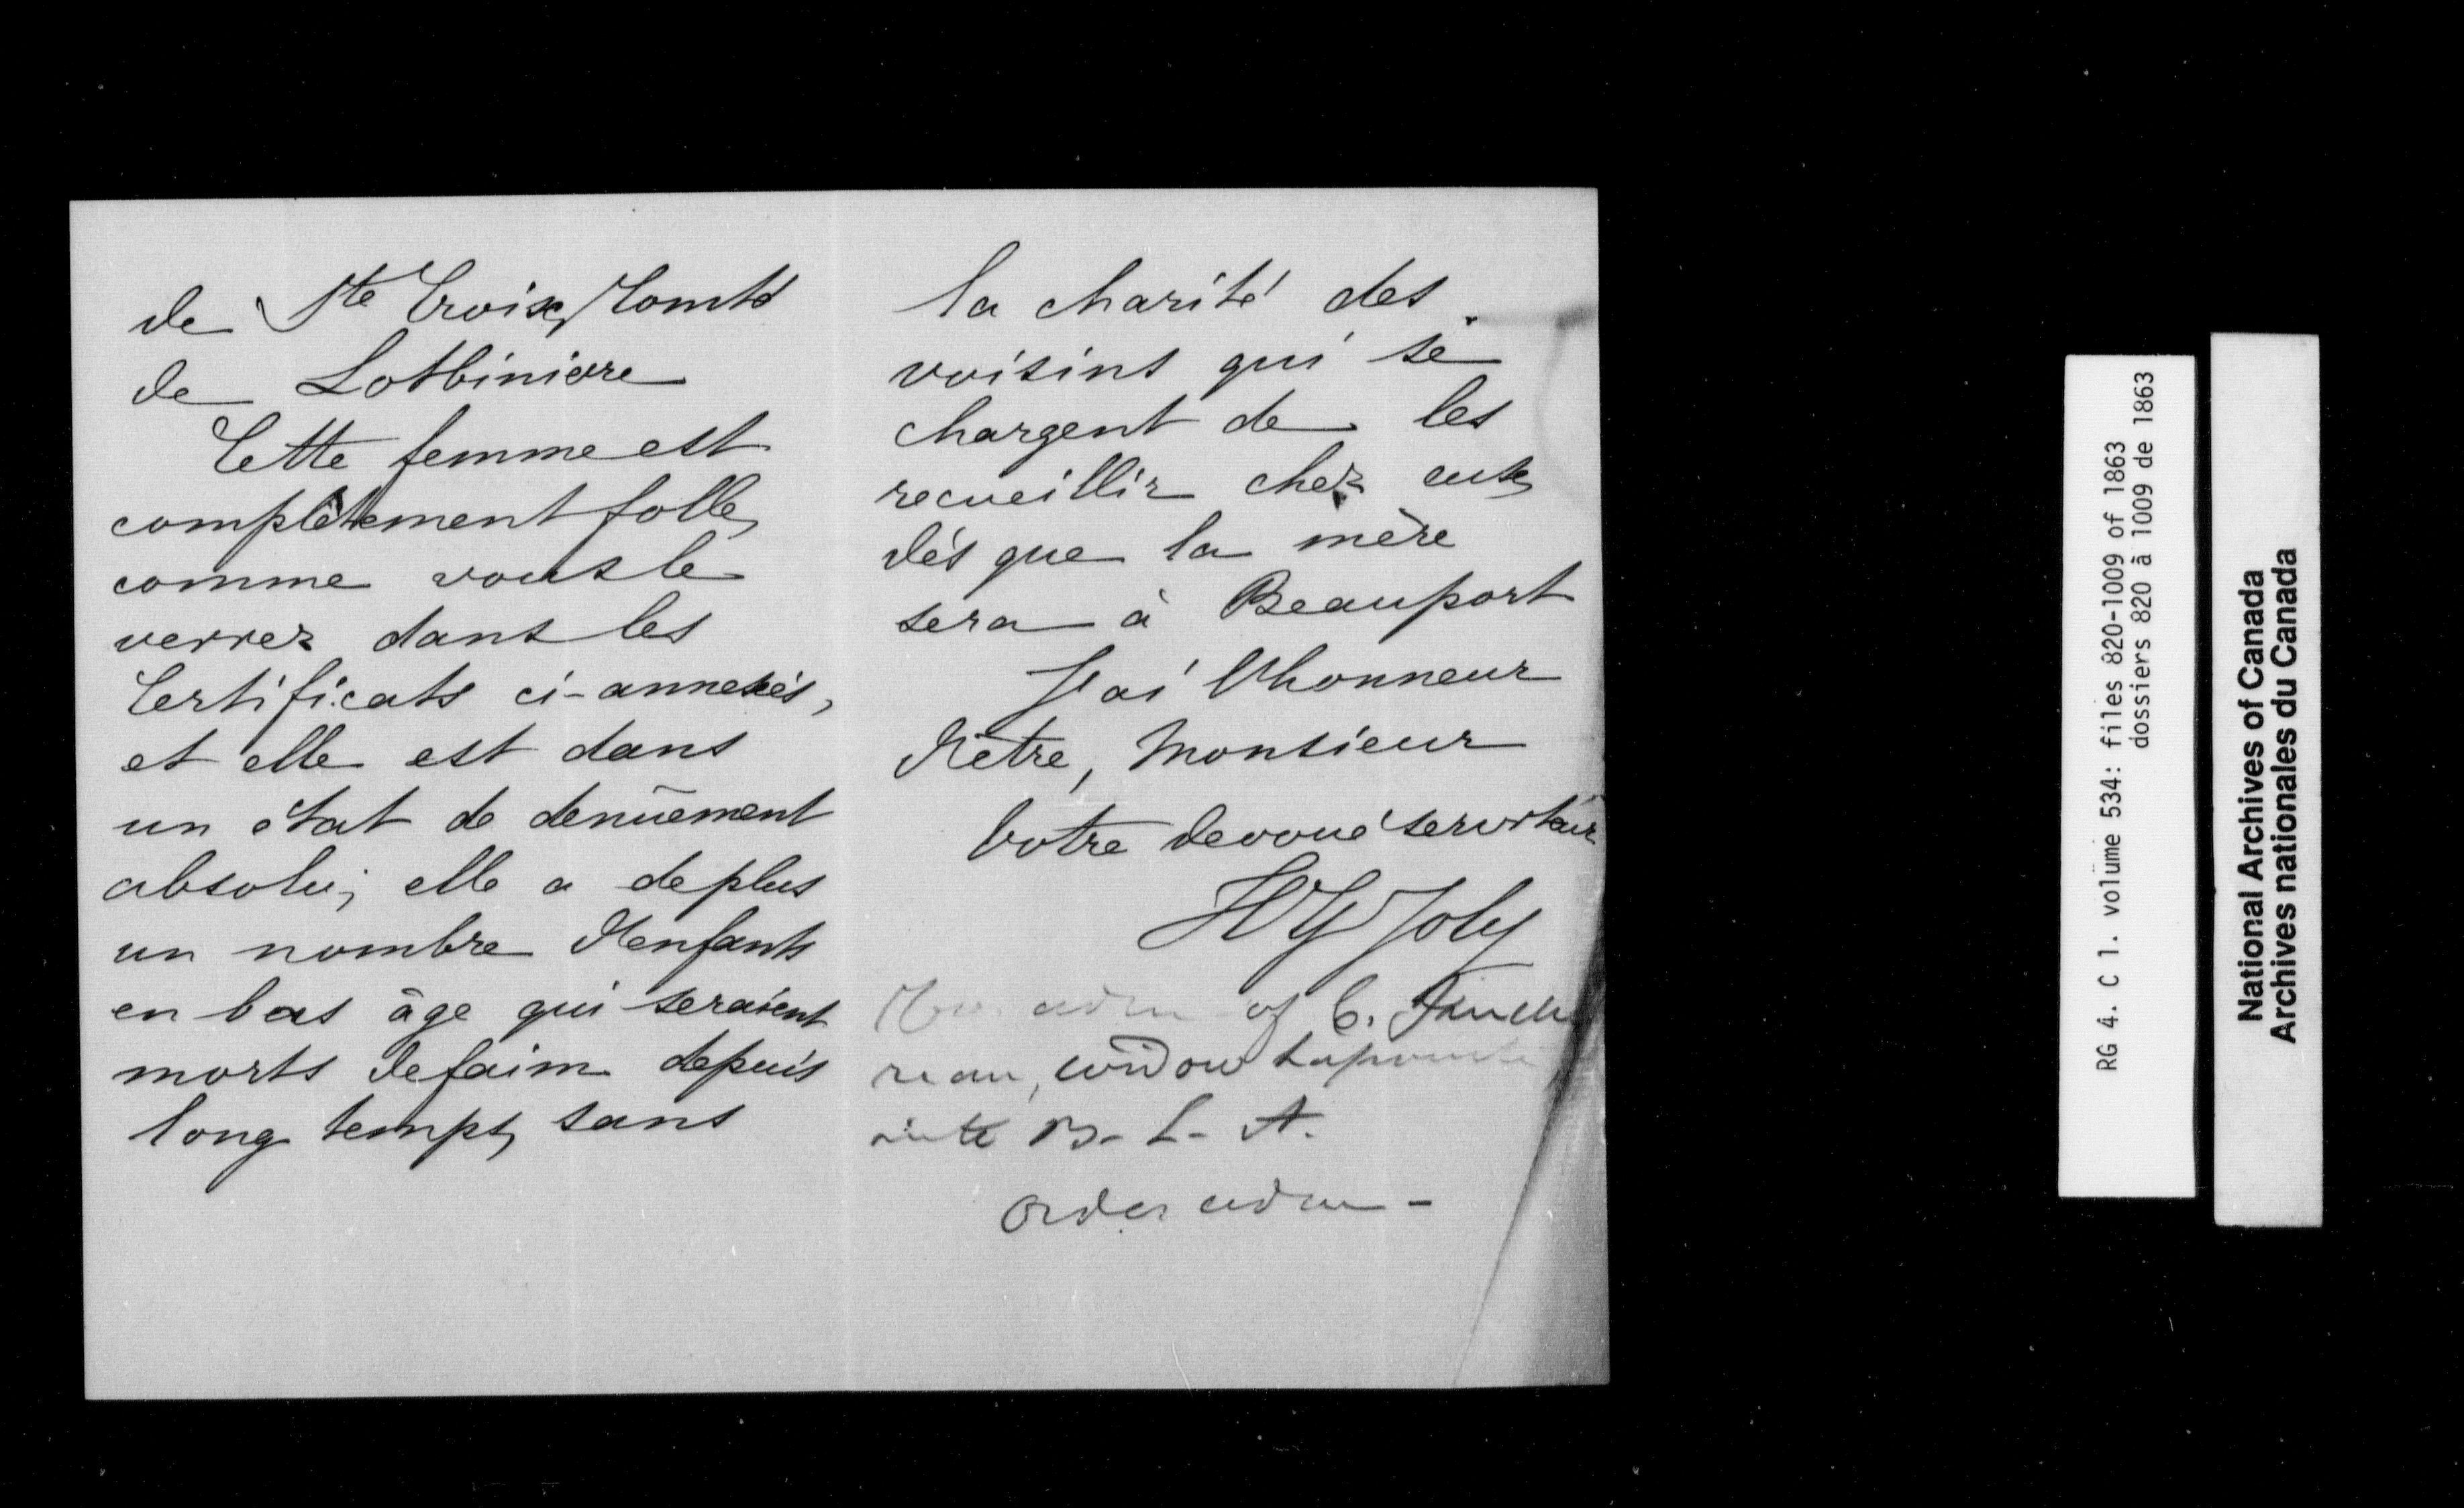 de Ste Croix, Comté
de Lotbinière
Cette femme est
complètement folle,
comme vous le
verrez dans les
Certificats ci-annexés,
et elle est dans
un état de denûement
absolu; elle a de plus
un nombre d'enfants
en bas âge qui seraient
morts de faim depuis
long temps, sans
la charité des
voisins qui se
chargent de les
recueillir chez eux,
dés que la mère
sera à Beauport
J'ai l'honneur
d'être, Monsieur
Votre devoué serviteur
HG Joly
adm of C.
reau, widow Lapointe
into B. L. A.
Order adm -
RG 4. C 1. volume 534: files 820-1009 of 1863
dossiers 820 à 1009 de 1863
National Archives of Canada
Archives nationales du Canada